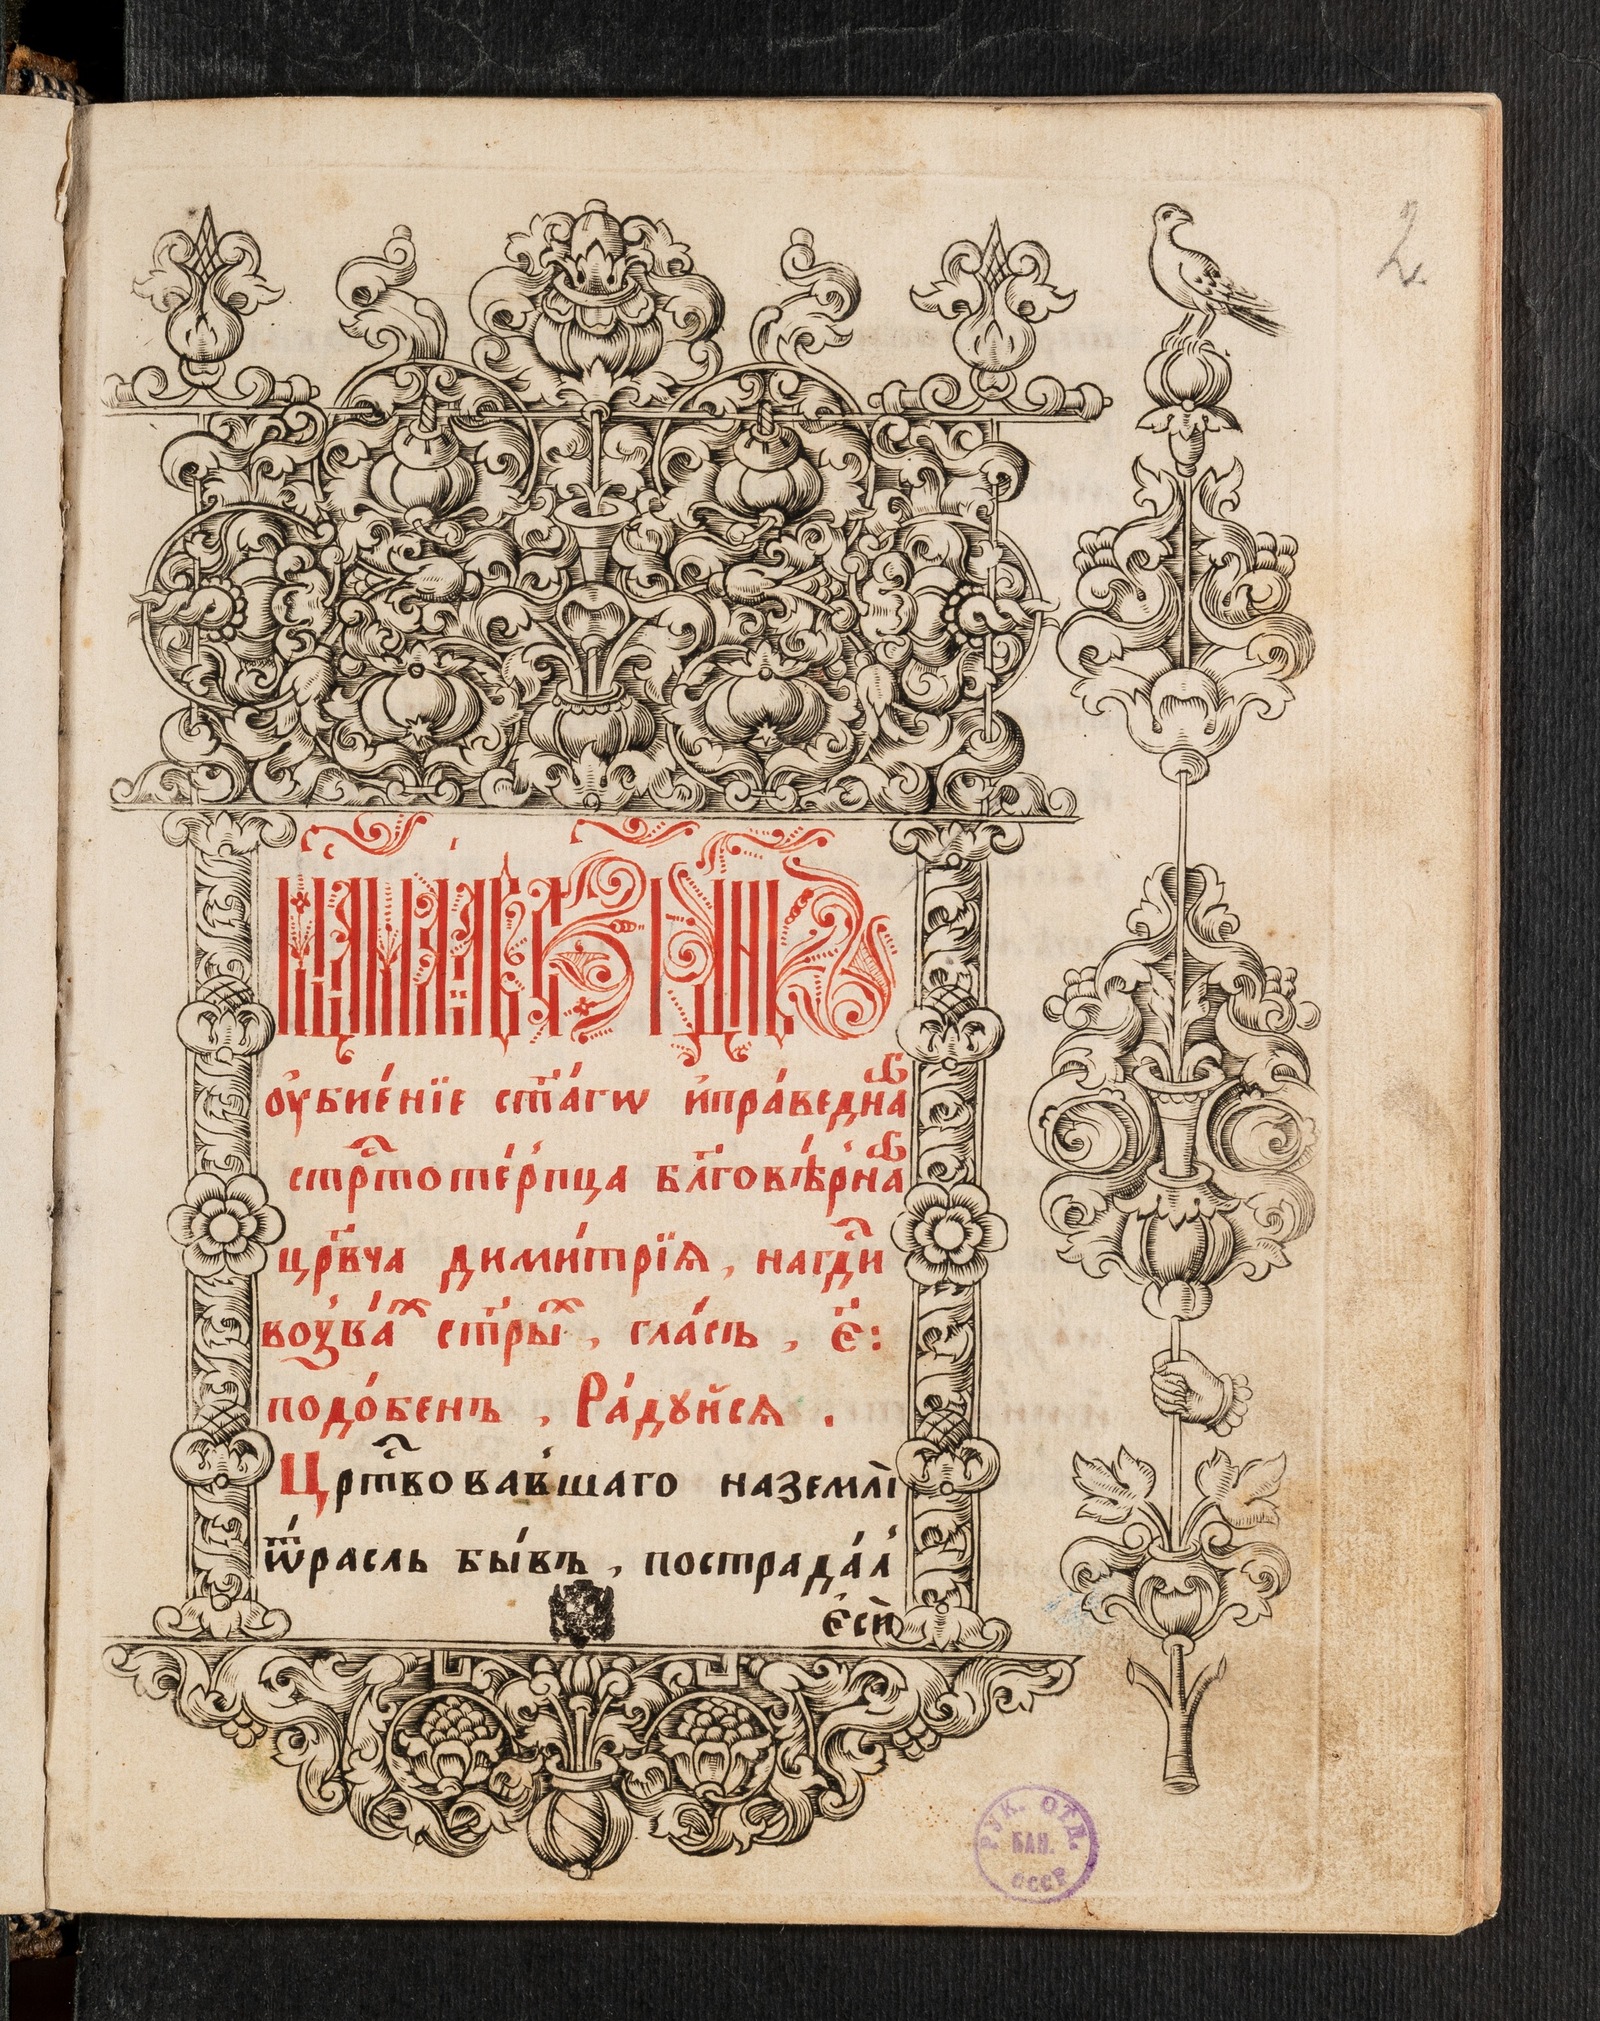 2
мца маїа въ еі днь
оу҆бие́нїе ст҃а́гѡ и҆пра́ведна
стрⷭ҇тоте́рпца бл҃говѣ́рна
цр҃вча дими́трїѧ, нагдⷭ҇и
воззва́х ст҃ры̀, гла́съ, є҃:
подо́бенъ, Ра́дꙋйсѧ.
Црⷭ҇твова́вшаго наземлѝ
ѿ́расль бы́въ, пострада́л
є҆сѝ
РУК. ОТД.
БАН.
СССР